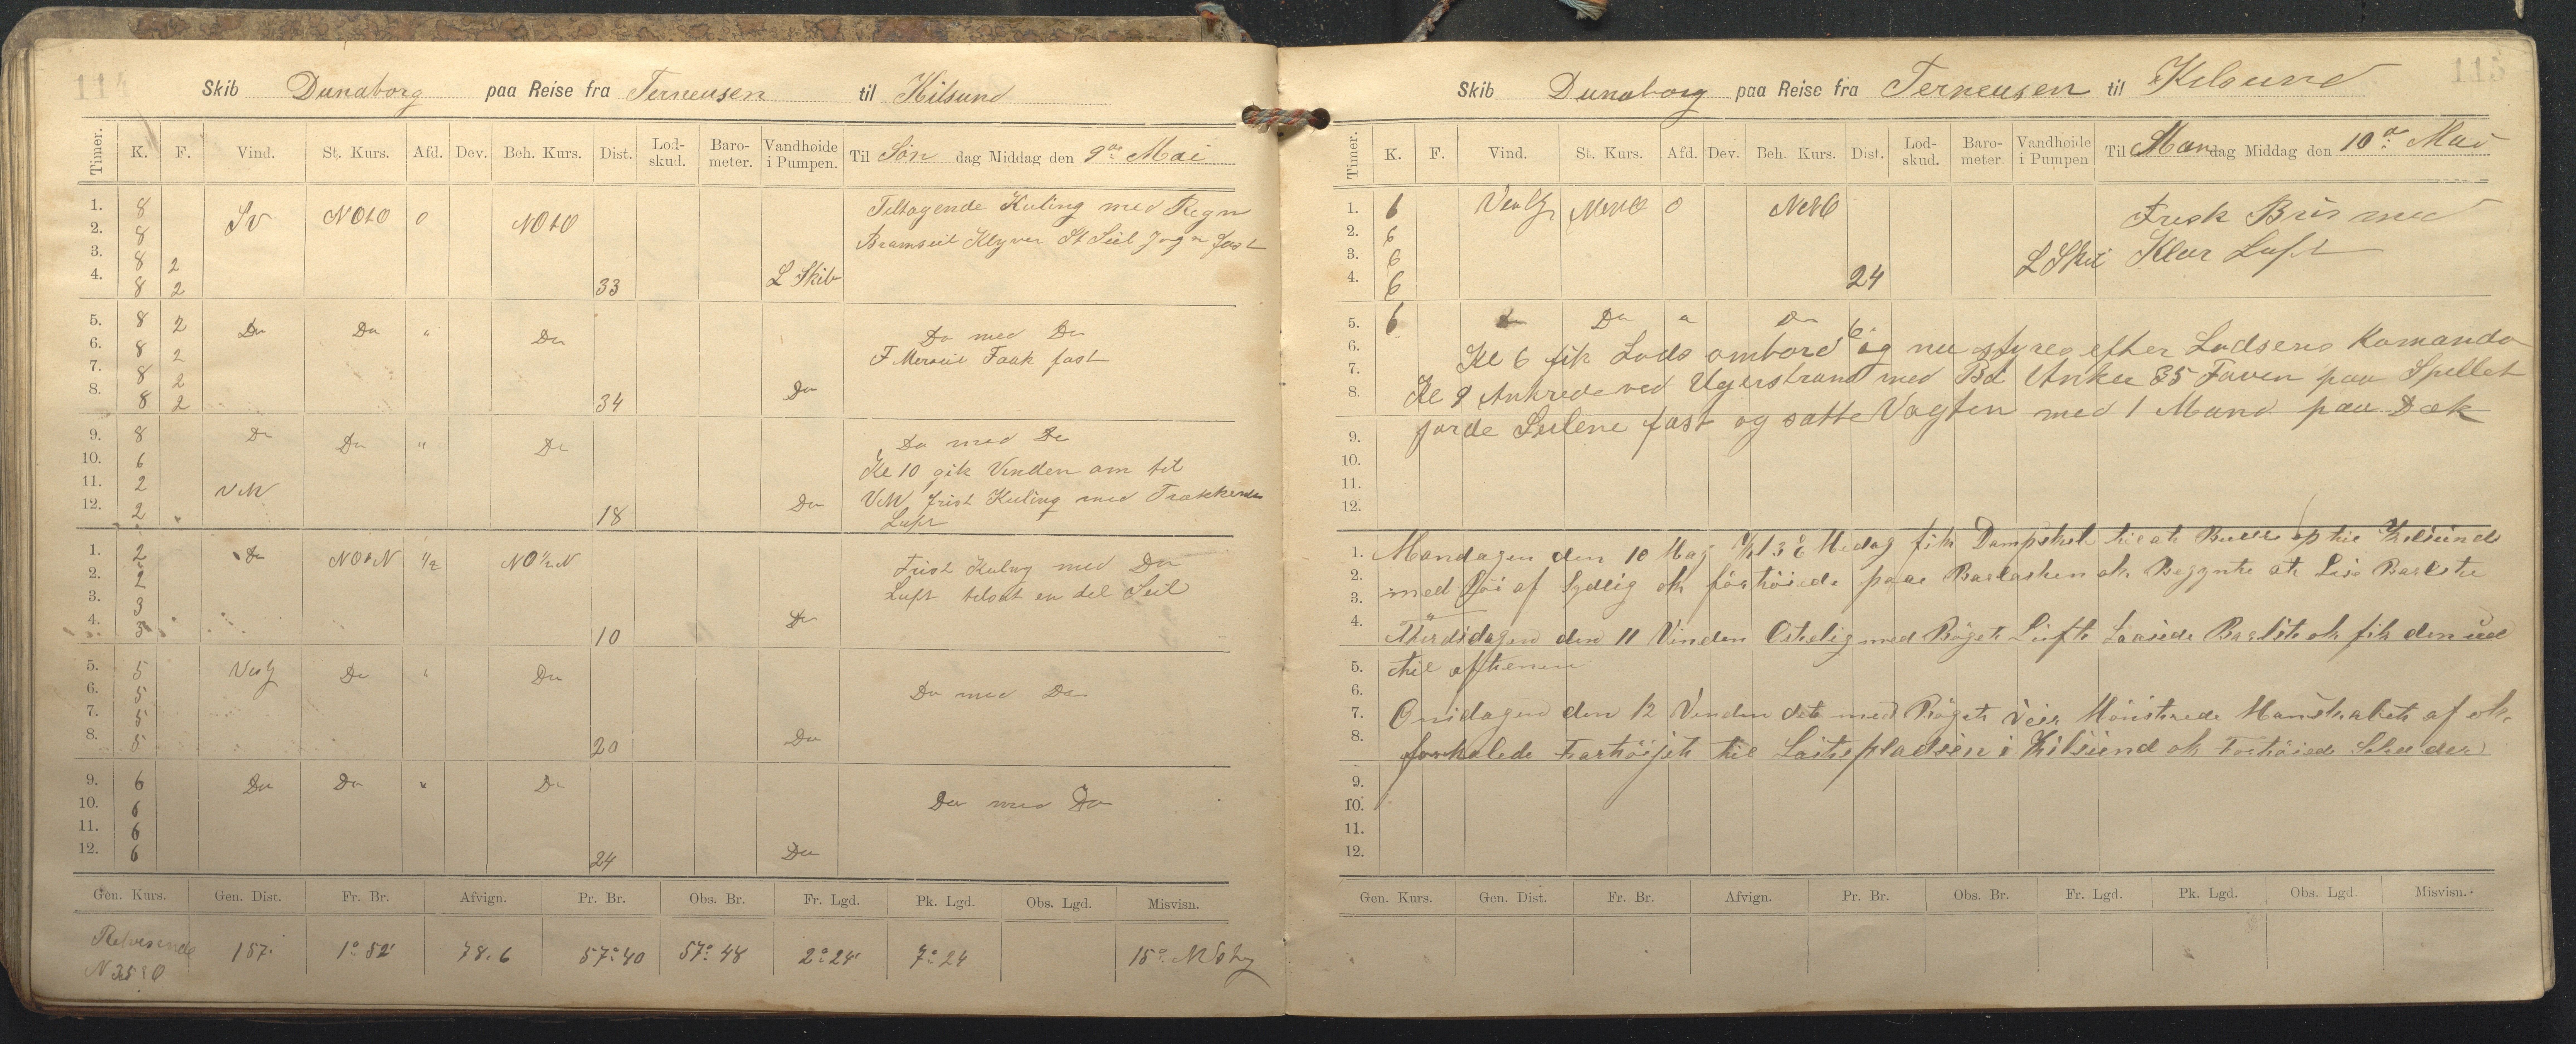 114
Skib Dunaborg paa Reise fra Terneusen til Kilsund
Timer. K. F. Vind. St. Kurs. Afd. Dev. Beh. Kurs. Dist. Lod-skud. Baro-meter. Vandhøide i Pumpen. Til Søn dag Middag den 9de Mai
1. 8 SV NOtO 0 NOtO Tiltagende Kuling med Regn
2. 8 Bramseil Klyver St Seil fast
3. 8 2
4. 8 2 33 L Skib
5. 8 2 Do Do " Do Do med Do
6. 8 2 F Merseil Faak fast
7. 8 2
8. 8 2 34 Do
9. 8 Do Do " Do Do med Do
10. 6 Kl 10 gik Vinden om til
11. 2 VNV Frisk Kuling med Trækkende
12. 2 18 Do Luft
1. 2 Do NOtN 1/2 NO 1/2 N Frisk Kuling med Do
2. 2 Luft tilsat en del Seil
3. 3
4. 3 10 Do
5. 5 Do " Do
6. 5 Do med Do
7. 5
8. 5 20 Do
9. 6 Do Do " Do
10. 6 Do med Do
11. 6
12. 6 24 Do
Gen. Kurs. Gen. Dist. Fr. Br. Afvign. Pr. Br. Obs. Br. Fr. Lgd. Pk. Lgd. Obs. Lgd. Misvisn.
Retvisende 157. 1° 52' 78.6 57° 40 57° 48 2° 24' 7° 24 15°
115
Skib Dunaborg paa Reise fra Terneusen til Kilsund
Timer. K. F. Vind. St. Kurs. Afd. Dev. Beh. Kurs. Dist. Lod-skud. Baro-meter. Vandhøide i Pumpen Til Mandag Middag den 10de Mai
1. 6 0 Frisk Bris med
2. 6
3. 6 L Skib Klar Luft
4. 6 24
5. 6 Do Do " Do 6
6. Kl 6 fik Lods ombord og nu styres efter Lodsens Komando
7.
8. Kl 9 Ankrede ved Ugerstrand med Bd Anker 35 Faven paa Spillet
9. gjorde Seilene fast og satte Vagten med 1 Mand paa Dæk
10.
11.
12.
1. Mandagen den 10 Maj Kl 3 E Medag fik Dampskib til at op til Kilsund
2. med af Sydlig ok förtöiede paa Barlasten ok Begynte at Barlste
3.
4. den 11 Vinden Ostelig med Böget Luft Barlst ok fik den ud
5. til aftenen
6.
7. Onsdagen den 12 Vinden det med Böget Veir Mönstrede Manskabet af ok
8. forhalede Fartöijet til Laitspladsen i Kilsund ok Fortöiede
9.
10.
11.
12.
Gen. Kurs. Gen. Dist. Fr. Br. Afvign. Pr. Br. Obs. Br. Fr. Lgd. Pk. Lgd. Obs. Lgd. Misvisn.